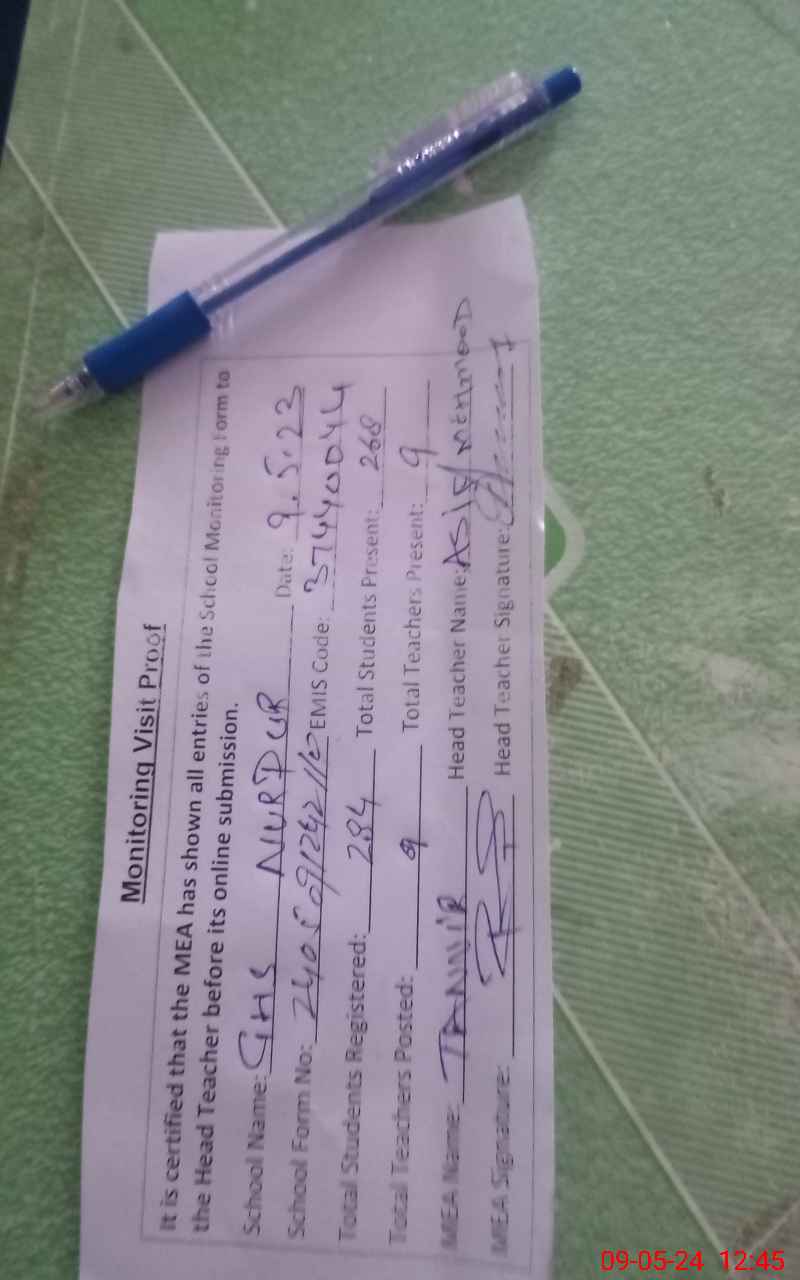 Monitoring Visit Proof
It is certified that the MEA has shown all entries of the School Monitoring Form to
the Head Teacher before its online submission.
School Name: GHS NURPUR Date: 9.5.23
School Form No: EMIS Code: 37440044
Total Students Registered: 284 Total Students Present: 268
Total Teachers Posted: 9 Total Teachers Present: 9
MEA Name: TANVIR Head Teacher Name: ASIF MEHMOOD
MEA Signature: Head Teacher Signature:
09-05-24 12:45